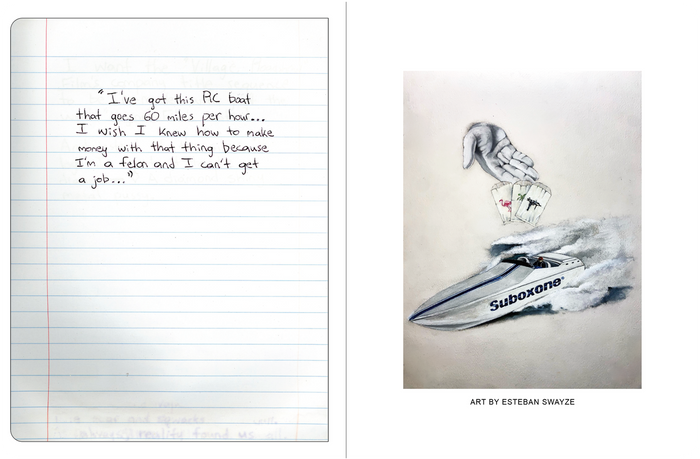 "I've got this RC boat
that goes 60 miles per hour...
I wish I knew how to make
money with that thing because
I'm a felon and I can't get
a job..."
Suboxone®
ART BY ESTEBAN SWAYZE
reality found us